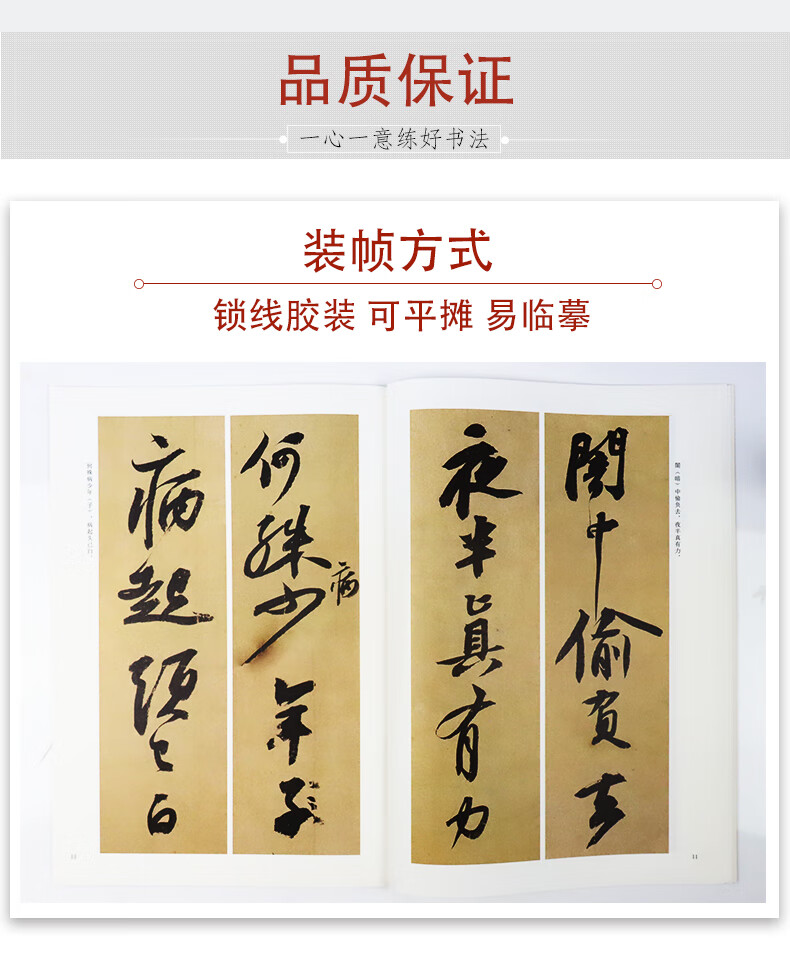 品质保证
一心一意练好书法
装帧方式
锁线胶装 可平摊 易临摹
闇（暗）中偷负去，夜半真有力，
闇中偷負去
夜半真有力
何殊少年子
病
病起頭已白
何殊病少年（子），病起头已白。
11